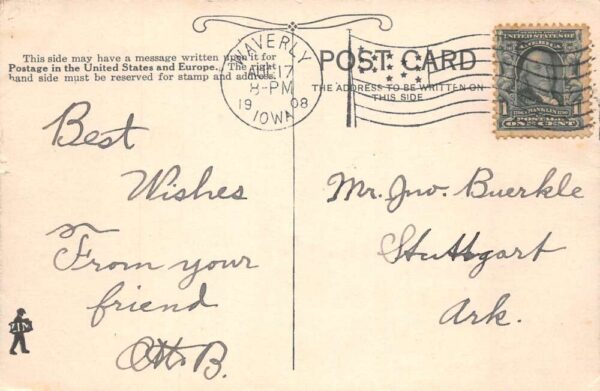 This side may have a message written upon it for
Postage in the United States and Europe. The right
hand side must be reserved for stamp and address.
WAVERLY
17
8-PM
19 08
IOWA
POST CARD
THE ADDRESS TO BE WRITTEN ON
THIS SIDE
UNITED STATES OF
AMERICA
FRANKLIN
POSTAGE
1 ONE CENT 1
Best
Wishes
From your
friend
B.
Mr. Jno. Buerkle
Stuttgart
Ark.